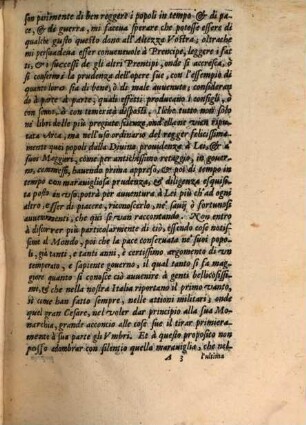 son parimente di ben reggere i popoli in tempo & di pa-
ce, & di guerra, mi faceua sperare che potesse essere di
qualche gusto questo dono all'Altezza Vostra; oltrache
mi persuadeua esser conueneuole à Prencipe, leggere i fat
ti, & i successi de gli altri Prentipi, onde si accresca, ò
si confermi la prudenza dell'opere sue, con l'essempio di
quanto loro sia di bene, ò di male auuenuto; considerato
di à parte à parte, quali effetti producano i consigli, ò
con senno, ò con temerità disposti. Il che tutto non solo
ne' libri delle più prouate
tata Arca, ma nell'uso ordinario del regger felicissima-
mente quei popoli dalla Diuina prouidenza à Lei, & à
suoi Maggiori, come per antichissimo retaggio, in gouer-
no, commessi, hauendo prima appreso, & poi di tempo in
tempo con marauigliosa prudenza, & diligenza esquisi-
ta posto in essere, potrà per auuentura à Lei più che ad ogni
altro esser di piacere, riconoscerlo, ne' sauij ò fortunosi
auuenimenti, che quì si van raccontando. Non entro
à discorrer più particolarmente di ciò, essendo cose notis-
sime al Mondo, poi che la pace conseruata ne' suoi popo-
li, già tanti, e tanti anni, è certissimo argomento di un
temperato, e sapiente gouerno, il qual tanto si fa mag-
giore quanto si conosce ciò auuenire à genti bellicosissi-
mi, & che nella nostra Italia riportano il primo vanto,
sì come han fatto sempre, nelle attioni militari; onde
quel gran Cesare, nel voler dar principio alla sua Mo-
narchia, grande acconcio alle cose sue il tirar primiera-
mente à sua parte gli Vmbri. Et à questo proposito non
posso adombrar con silentio quella marauiglia, che nel-
A 3 l'ultima